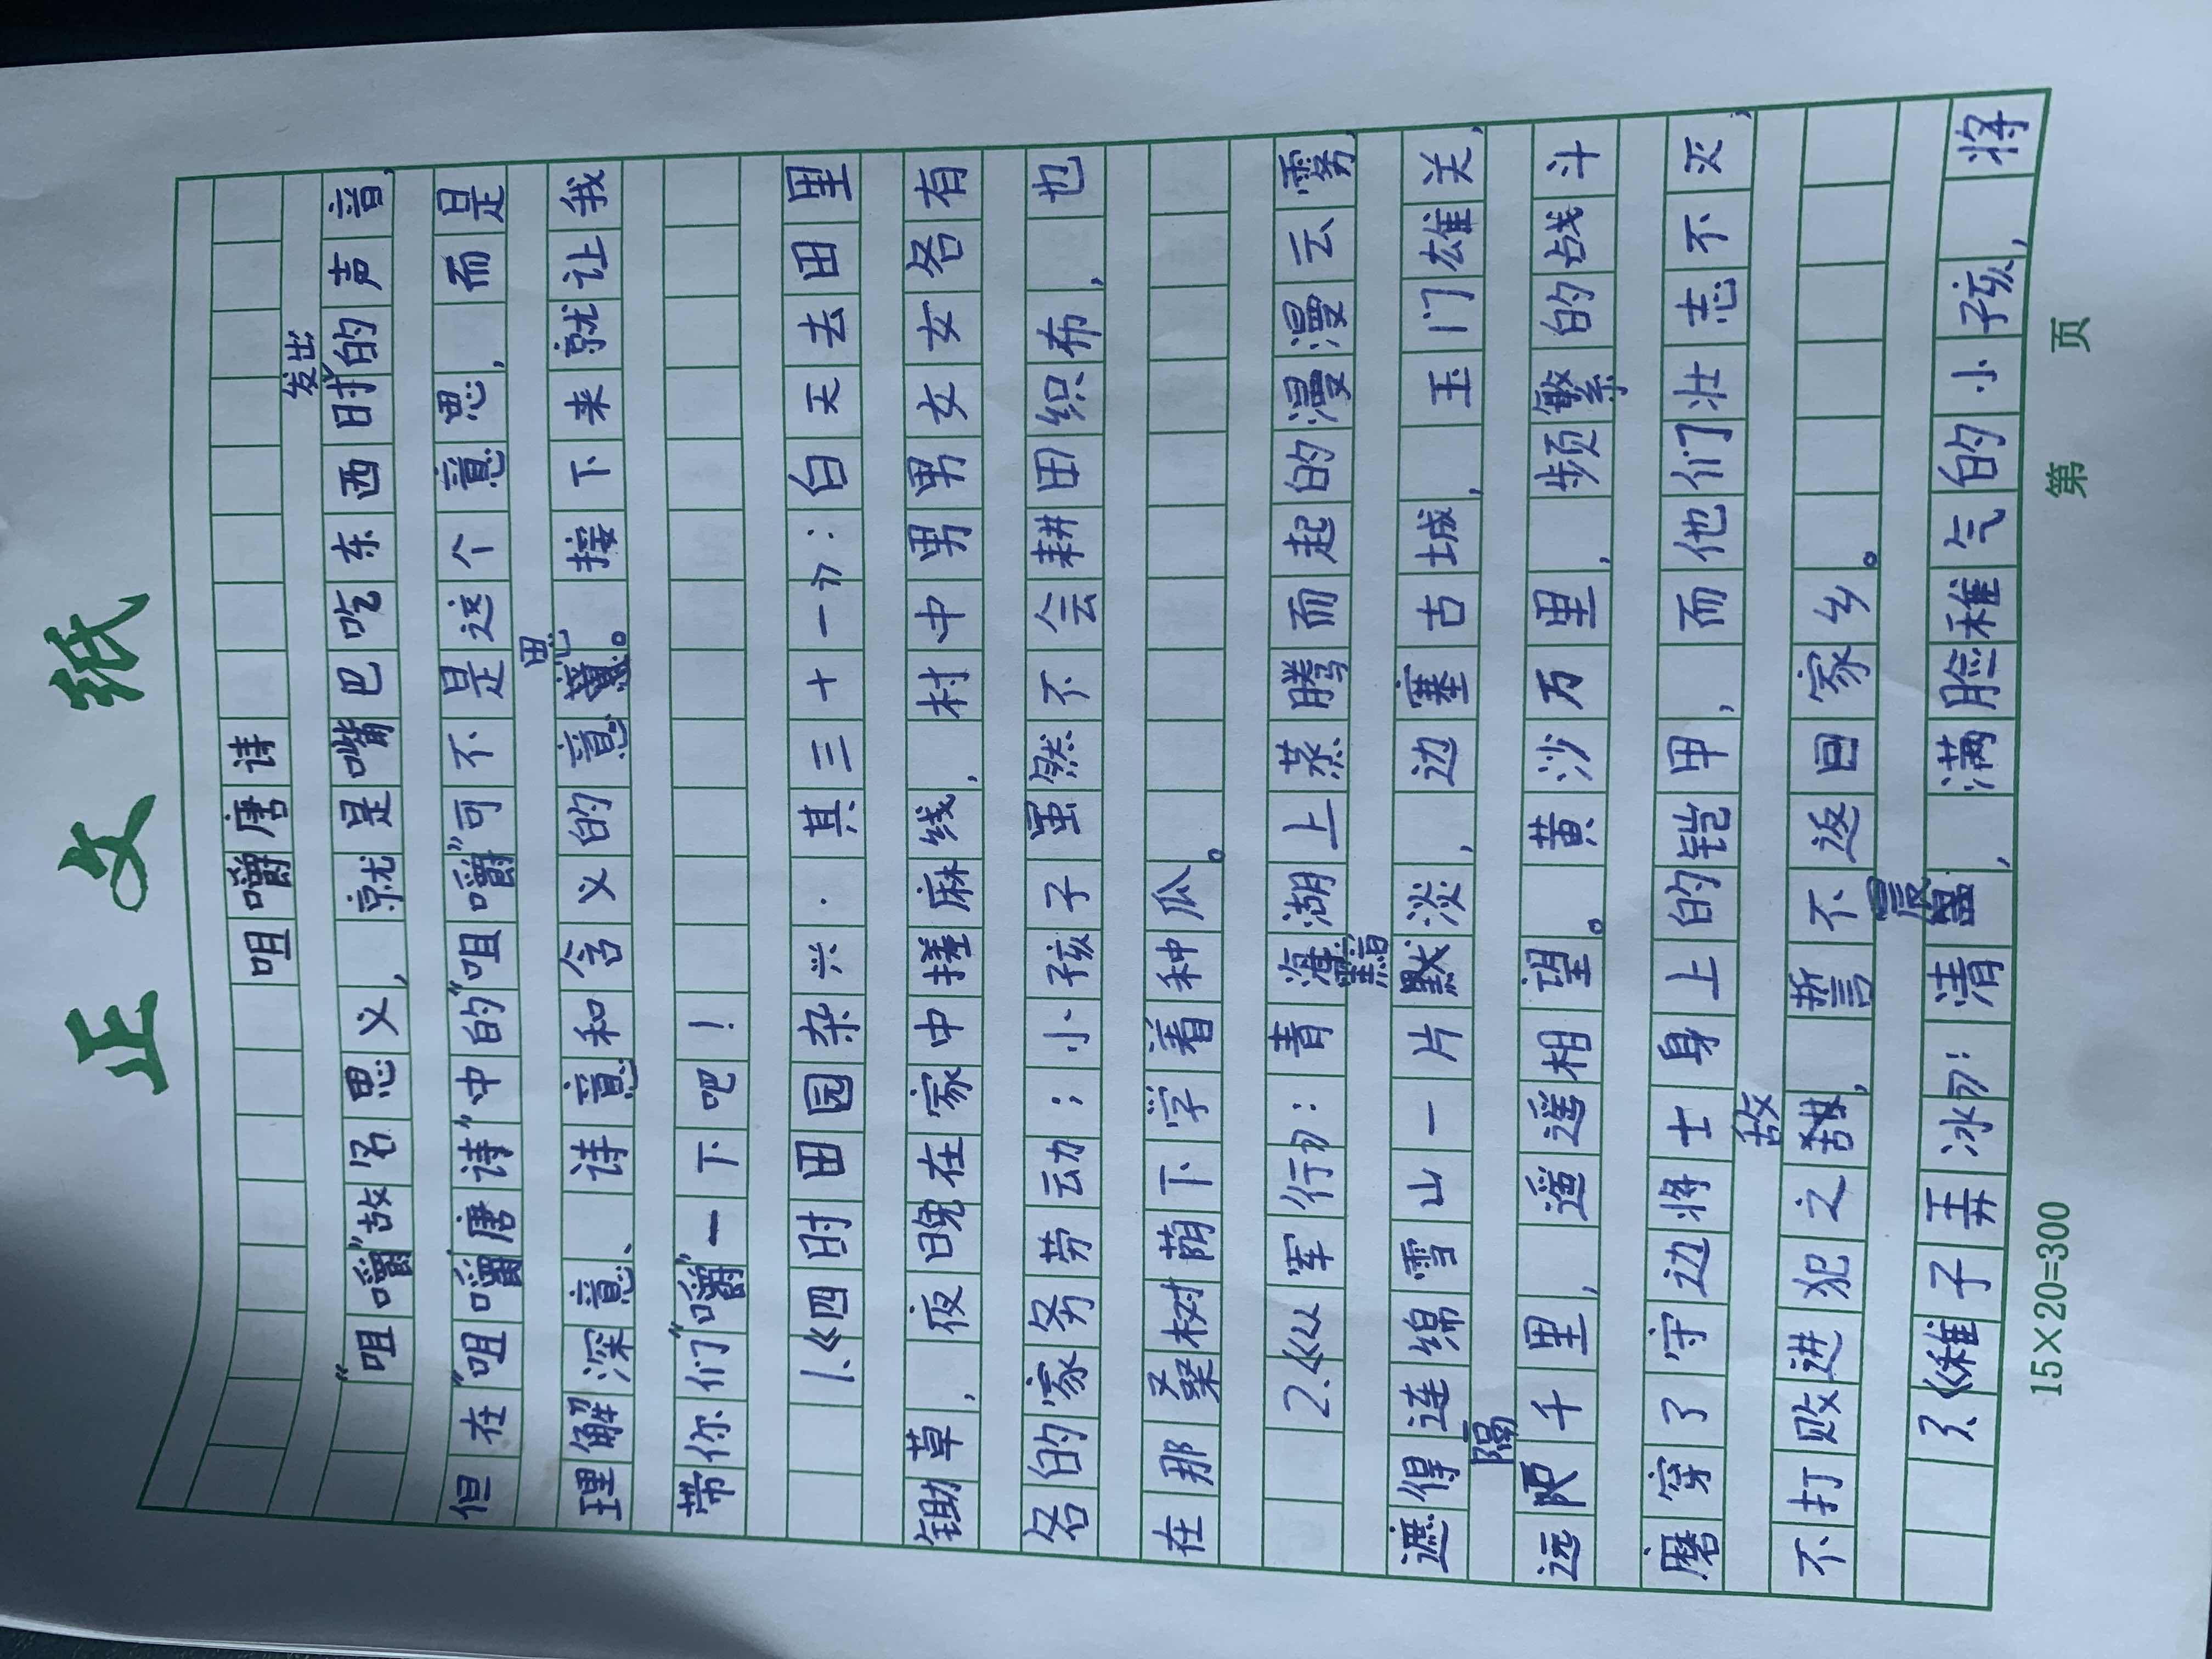 正文纸
咀嚼唐诗
“咀嚼”故名思义，就是嘴巴吃东西时发出的声音，
但在“咀嚼唐诗”中的“咀嚼”可不是这个意思，而是
理解深意、诗意和含义的意思。接下来就让我
带你们“嚼”一下吧！
1.《四时田园杂兴·其三十一》：白天去田里
锄草，夜晚在家中搓麻线，村中男男女女各有
各的家务劳动；小孩子虽然不会耕田织布，也
在那桑树荫下学着种瓜。
2.《从军行》：青海湖上蒸腾而起的漫漫云雾，
遮得连绵雪山一片黯淡，边塞古城，玉门雄关，
远隔千里，遥遥相望。黄沙万里，频繁的战斗
磨穿了守边将士身上的铠甲，而他们壮志不灭，
不打败进犯之敌，誓不返回家乡。
3.《稚子弄冰》：清晨，满脸稚气的小孩，将
15×20=300
第 页